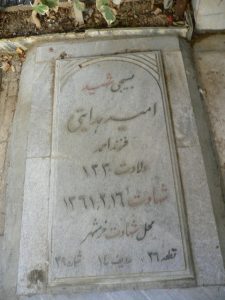 بسیجی شهید
امیر هدایتی
فرزند احمد
ولادت ۱۳۴۰
شهادت ۱۳۶۱،۲،۱۶
محل شهادت خرمشهر
قطعه ۲۶ ردیف ۱۴ شماره ۳۹